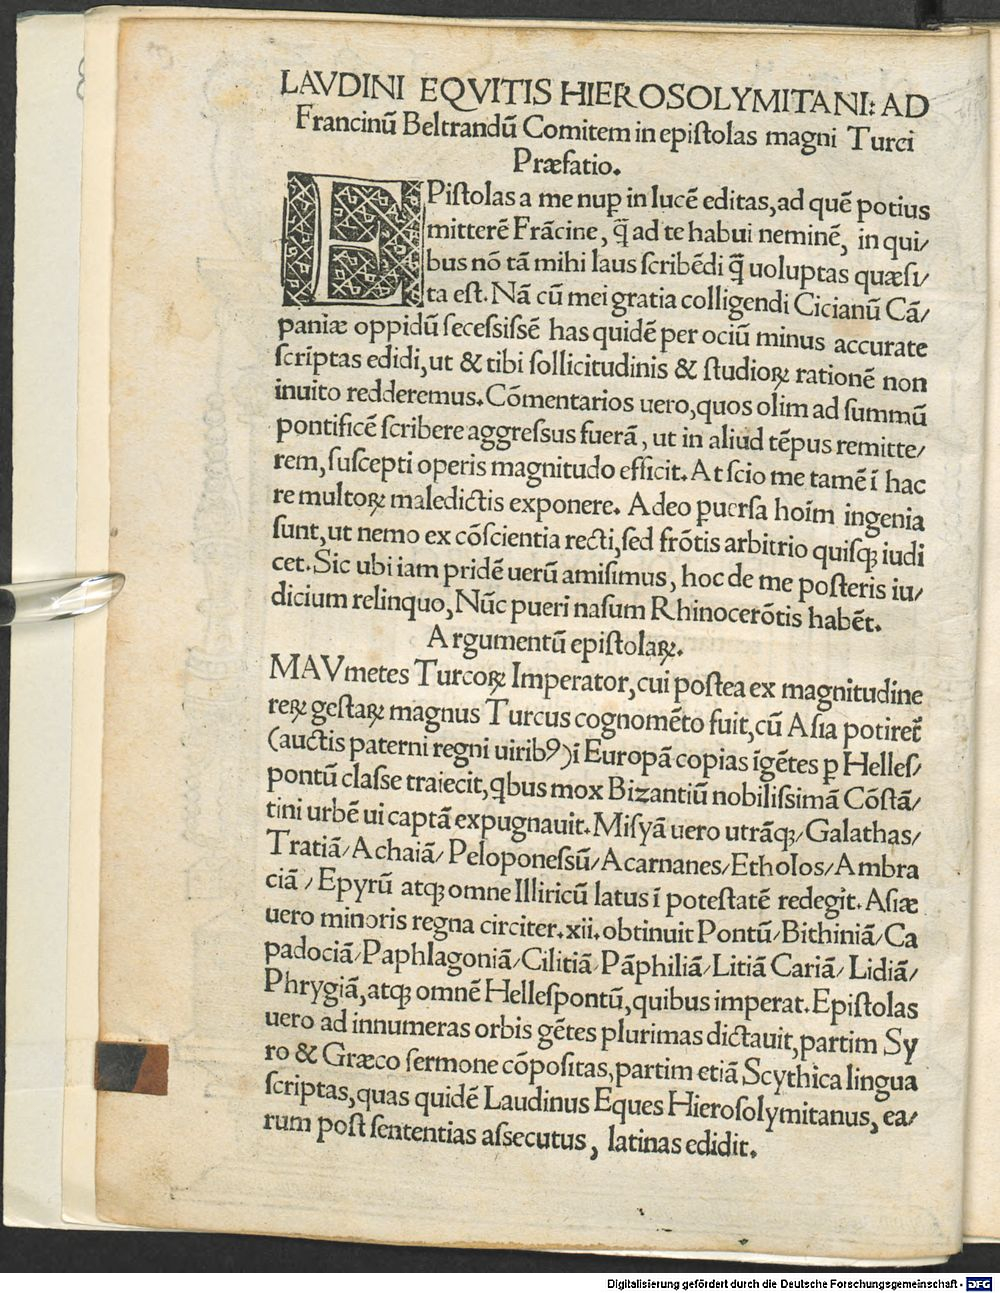 LAVDINI EQVITIS HIEROSOLYMITANI: AD
Francinũ Beltrandũ Comitem in epiſtolas magni Turci
Præfatio.
EPiſtolas a me nuꝑ in lucẽ editas, ad quẽ potius
mitterẽ Frãcine, q̃ ad te habui neminẽ, in qui/
bus nõ tã mihi laus ſcribẽdi q̃ uoluptas quæſi/
ta eſt. Nã cũ mei gratia colligendi Cicianũ Cã/
paniæ oppidũ ſeceſsiſsẽ has quidẽ per ociũ minus accurate
ſcriptas edidi, ut & tibi ſollicitudinis & ſtudioꝝ rationẽ non
inuito redderemus. Cõmentarios uero, quos olim ad ſummũ
pontificẽ ſcribere aggreſsus fuerã, ut in aliud tẽpus remitte/
rem, ſuſcepti operis magnitudo efficit. At ſcio me tamẽ ĩ hac
re multoꝝ maledictis exponere. Adeo ꝑuerſa hoĩm ingenia
ſunt, ut nemo ex cõſcientia recti, ſed frõtis arbitrio quiſqꝫ iudi
cet. Sic ubi iam pridẽ uerũ amiſimus, hoc de me poſteris iu/
dicium relinquo, Nũc pueri naſum Rhinocerõtis habẽt.
Argumentũ epiſtolaꝝ.
MAVmetes Turcoꝝ Imperator, cui poſtea ex magnitudine
reꝝ geſtaꝝ magnus Turcus cognomẽto fuit, cũ Aſia potiret᷑
(auctis paterni regni uiribꝰ) ĩ Europã copias ĩgẽtes ꝑ Helleſ/
pontũ claſse traiecit, qbus mox Bizantiũ nobiliſsimã Cõſtã/
tini urbẽ ui captã expugnauit. Miſyã uero utrãqꝫ/ Galathas/
Tratiã/ Achaiã/ Peloponeſsũ/ Acarnanes/ Etholos/ Ambra
ciã / Epyrũ atqꝫ omne Illiricũ latus ĩ poteſtatẽ redegit. Aſiæ
uero minoris regna circiter. xii. obtinuit Pontũ/ Bithiniã/ Ca
padociã/ Paphlagoniã/ Cilitiã/ Pãphiliã/ Litiã Cariã/ Lidiã/
Phrygiã, atqꝫ omnẽ Helleſpontũ, quibus imperat. Epiſtolas
uero ad innumeras orbis gẽtes plurimas dictauit, partim Sy
ro & Græco ſermone cõpoſitas, partim etiã Scythica lingua
ſcriptas, quas quidẽ Laudinus Eques Hieroſolymitanus, ea/
rum poſt ſententias aſsecutus, latinas edidit.
Digitalisierung gefördert durch die Deutsche Forschungsgemeinschaft - DFG